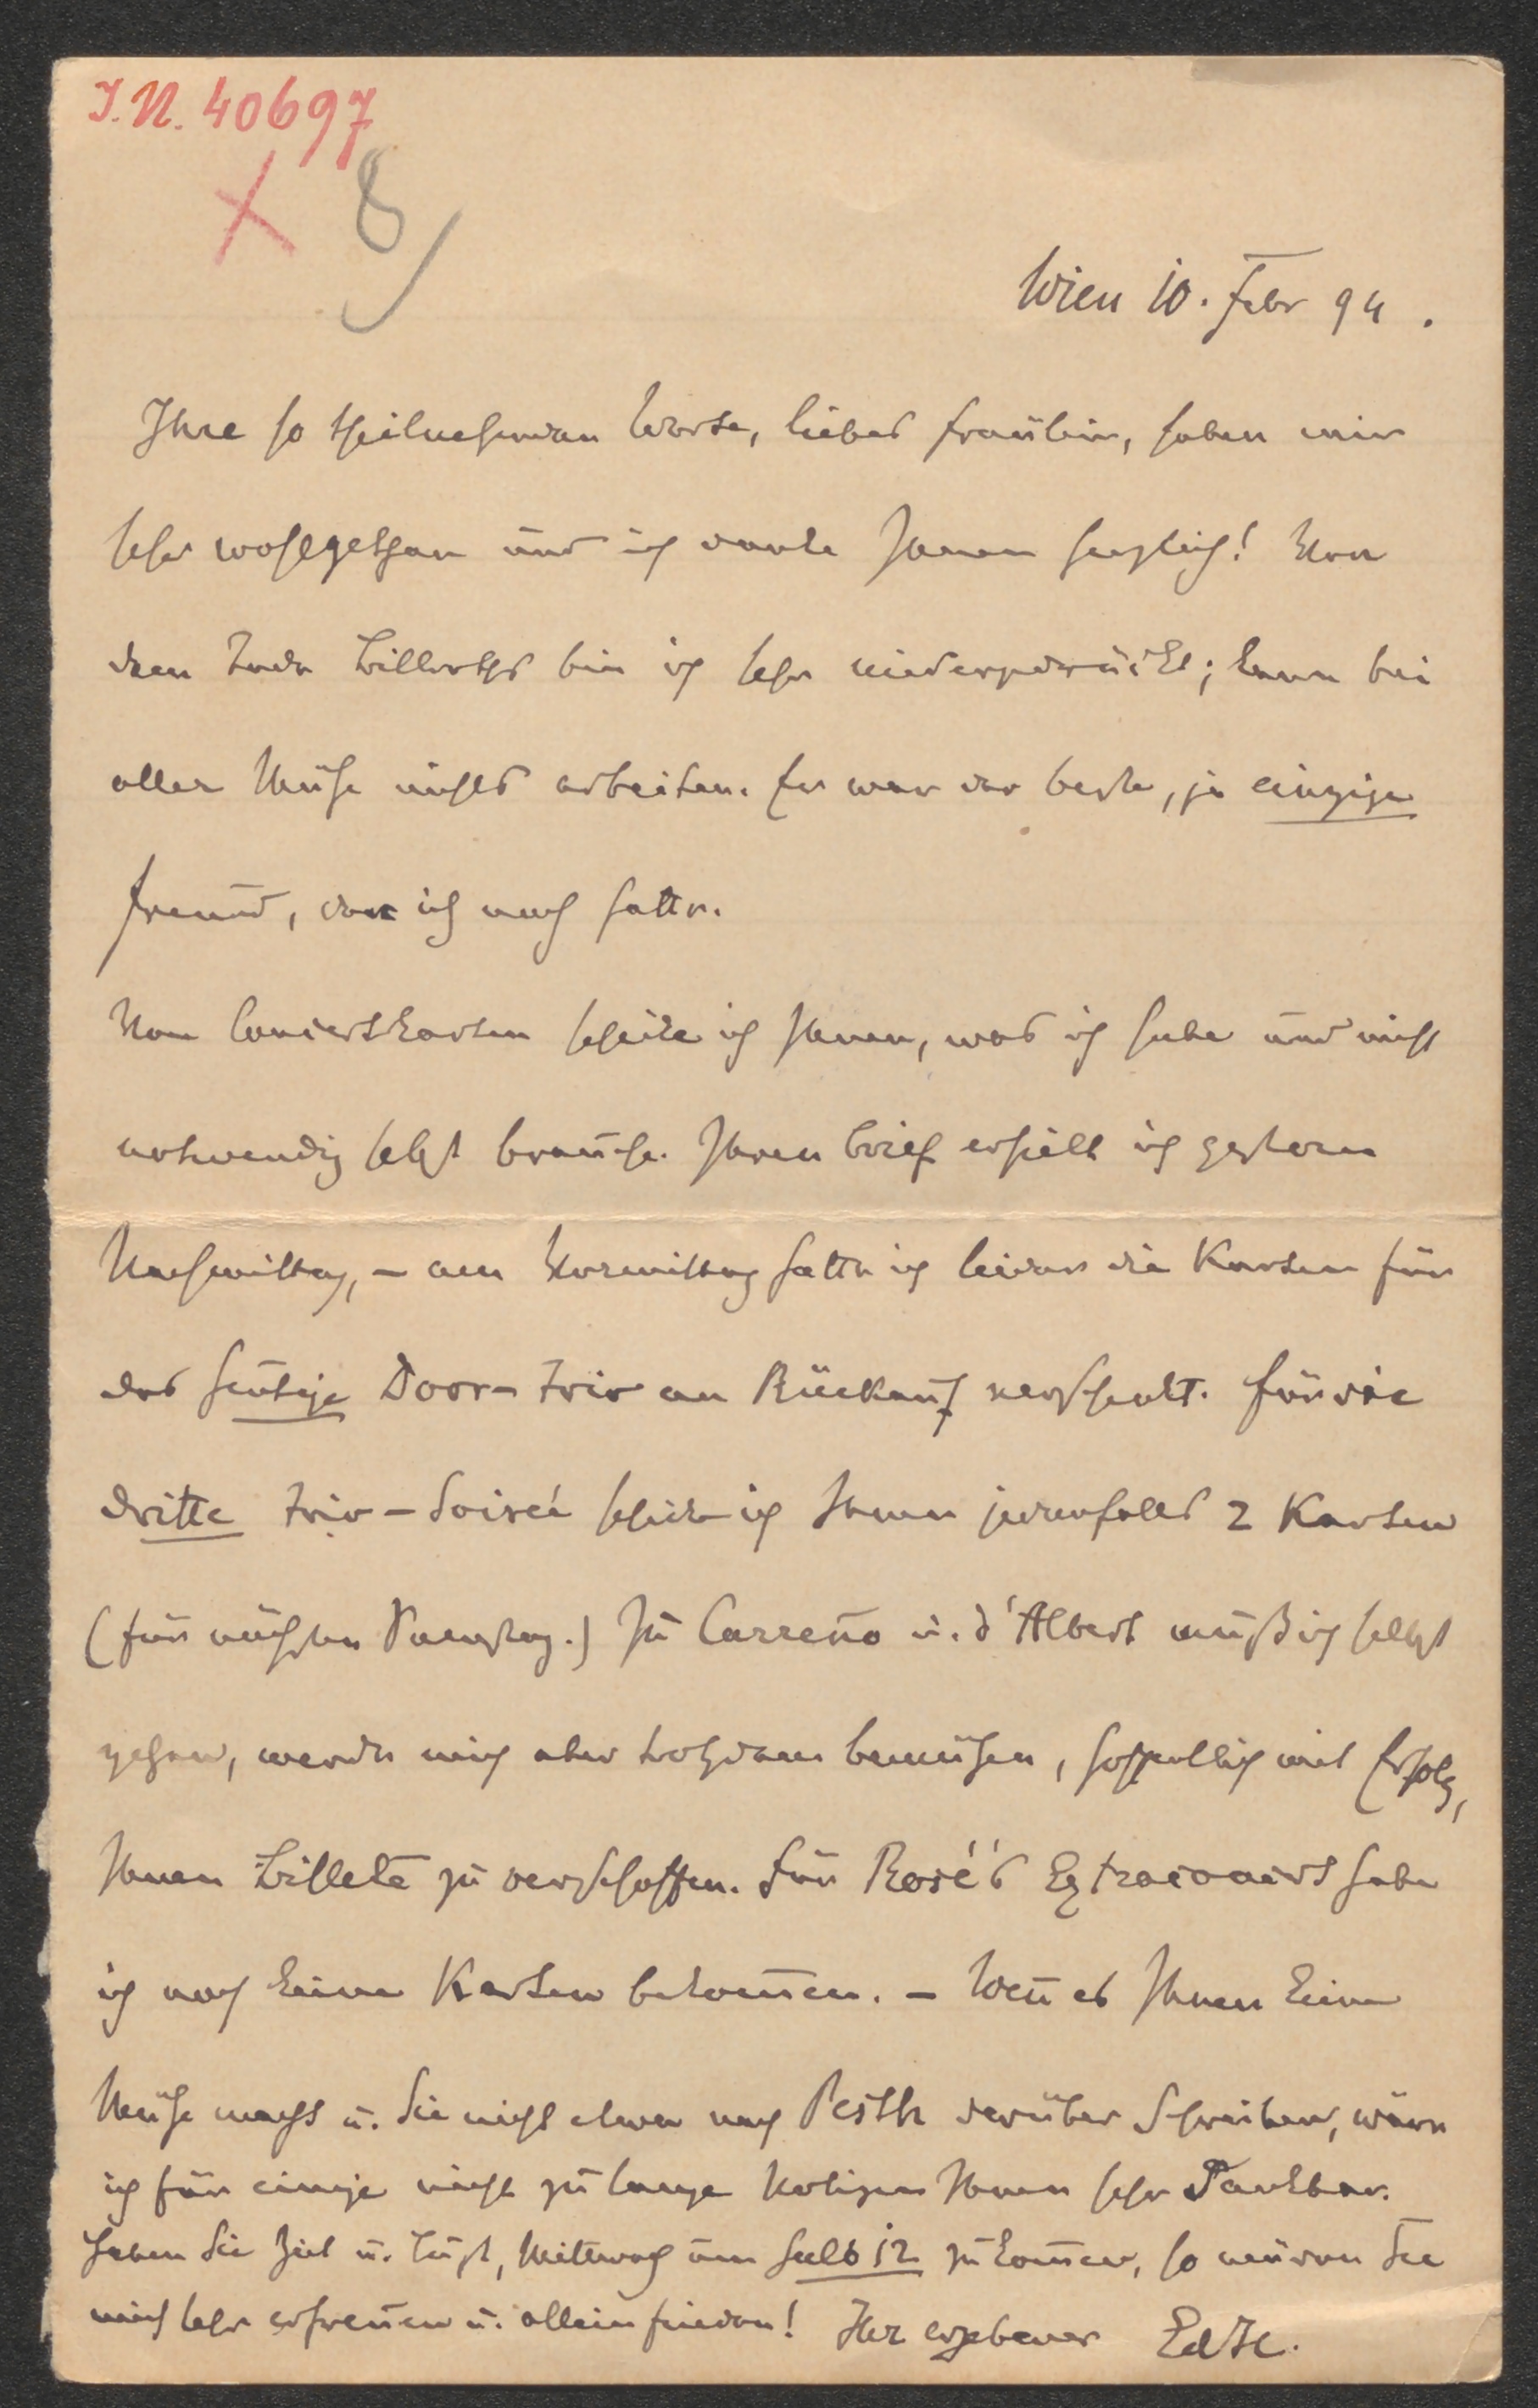 I.N. 40697
8
Wien 10. Febr 94.
Ihre so theilnehmenden Worte, liebes Fräulein, haben mir
sehr wohlgethan und ich danke Ihnen herzlich! Von
dem Tode Billroths bin ich sehr niedergedrückt; kann bei
aller Mühe nichts arbeiten. Er war der beste, ja einzige
Freund, den ich noch hatte.
Von Concertkarten schicke ich Ihnen, was ich habe und nicht
notwendig selbst brauche. Ihren Brief erhielt ich gestern
Nachmittag, – am Vormittag hatte ich leider die Karten für
das heutige Door-Trio an Rückauf verschenkt. Für die
dritte Trio-Soireé schicke ich Ihnen jedenfalls 2 Karten
(für nächsten Samstag.) Zu Carreño u. d'Albert muß ich selbst
gehen, werde mich aber trotzdem bemühen, hoffentlich mit Erfolg,
Ihnen Billete zu verschaffen. Für Rosé's Extraconcert habe
ich noch keine Karten bekom̅en. – Wen̅ es Ihnen keine
Mühe macht u. Sie nicht etwa nach Pesth darüber schreiben, wäre
ich für einige nicht zu lange Notizen Ihnen sehr dankbar.
Haben Sie Zeit u. Lust, Mittwoch um halb 12 zu kom̅en, so würden Sie
mich sehr erfreuen u. allein finden! Ihr ergebener EdH.